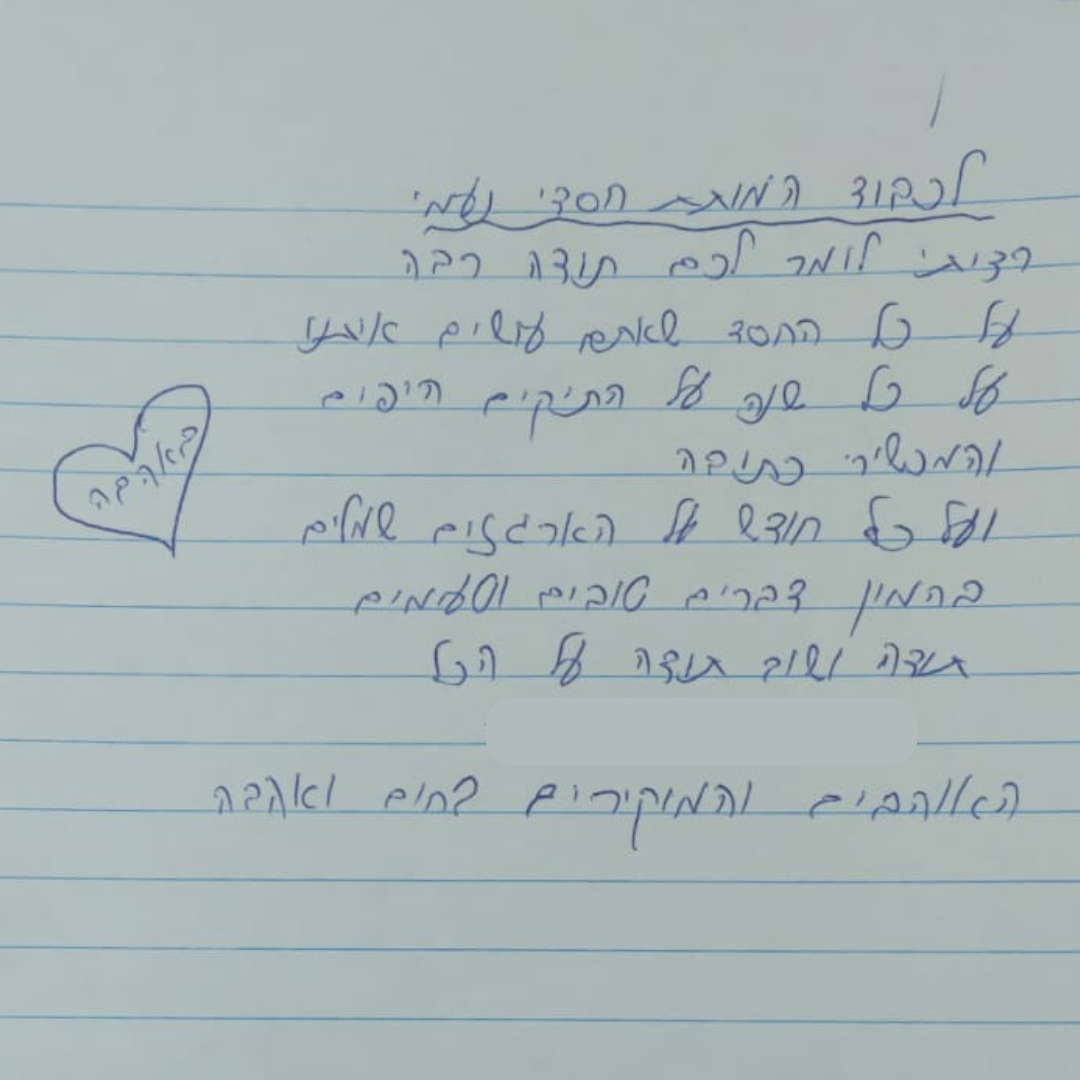 לכבוד העמותת חסדי נעמי
רציתי לומר לכם תודה רבה
על כל החסד שאתם עושים איתנו
על כל שנה על התיקים היפים
והמכשירי כתיבה
ועל כל חודש על הארגזים שמלים
בהמון דברים טובים וטעימים
תודה ושוב תודה על הכל
האוהבים והמוקירים בחום ואהבה
באהבה